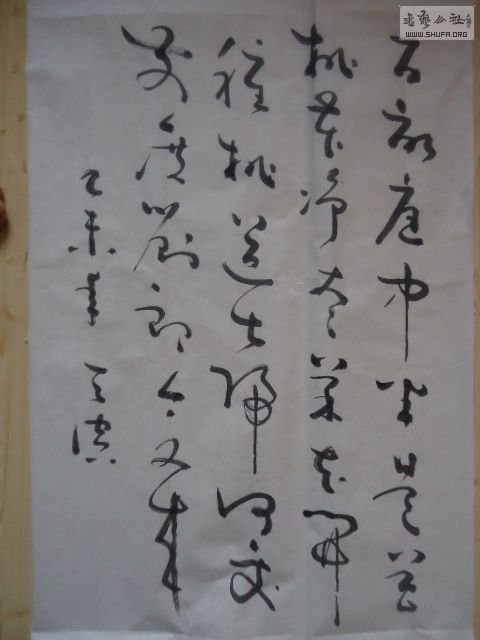 书艺公社
WWW.SHUFA.ORG
百亩庭中半是苔
桃花净尽菜花開
種桃道士歸何處
前度劉郎今又来
乙未春